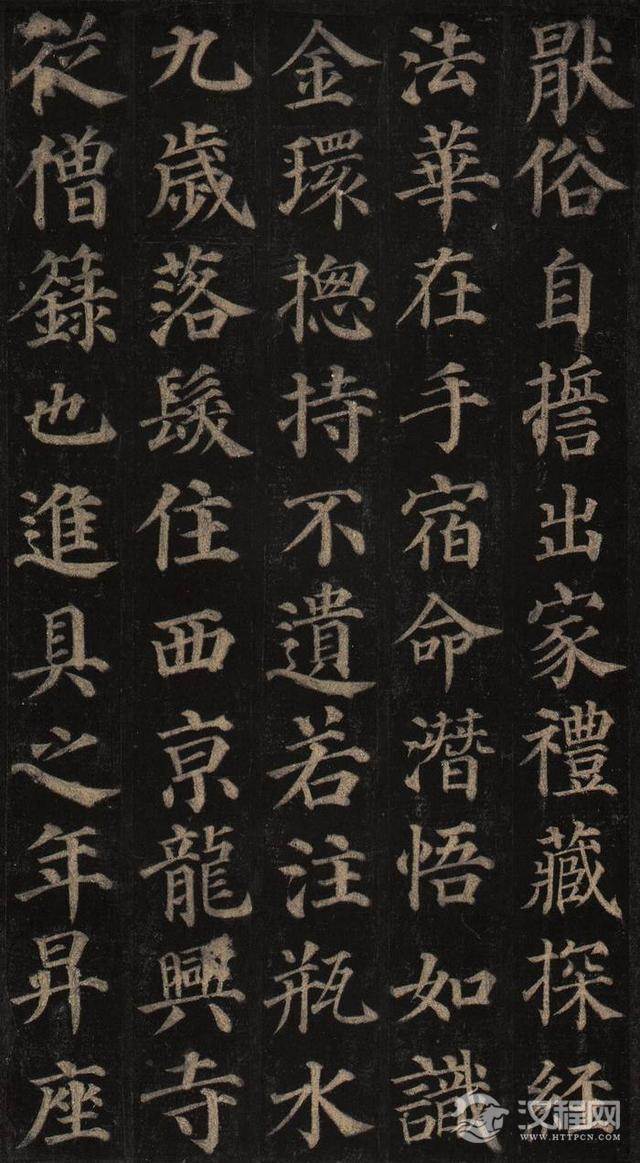 猒俗自擔出家禮藏探經
法華在手宿命潛悟如識
金環揔持不遺若注瓶水
九歲落髮住西京龍興寺
從僧籙也進具之年昇座
汉程网
WWW.HTTPCN.COM